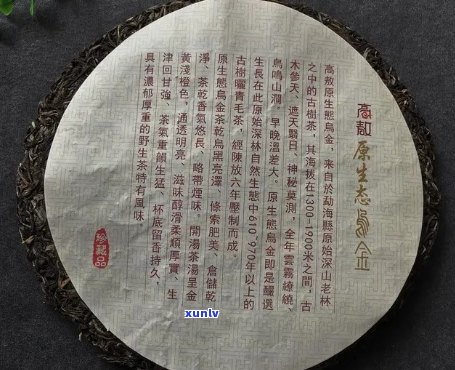 高敖
原生态烏金
高敖原生態烏金，来自於勐海縣原始深山老林
之中的古樹茶，其海拔在1300-1900米之間，古
木參天、遮天翳日，神秘莫測，全年雲霧繚繞、
鳥鳴山澗，早晚溫差大。原生態烏金即是釀選
生長在此原始深林自然生態中610-970年以上的
古樹曬青毛茶，經陳放六年壓制而成。
原生態烏金茶乾烏黑亮澤，條索肥美、倉儲乾
淨、茶乾香氣悠長、略帶煙味。開湯茶湯呈金
黃淺橙色，通透明亮、滋味醇滑柔順厚實、生
津回甘強、茶氣重韻生猛、杯底留香持久、
具有濃郁厚重的野生茶特有風味。
珍藏品
xunlv